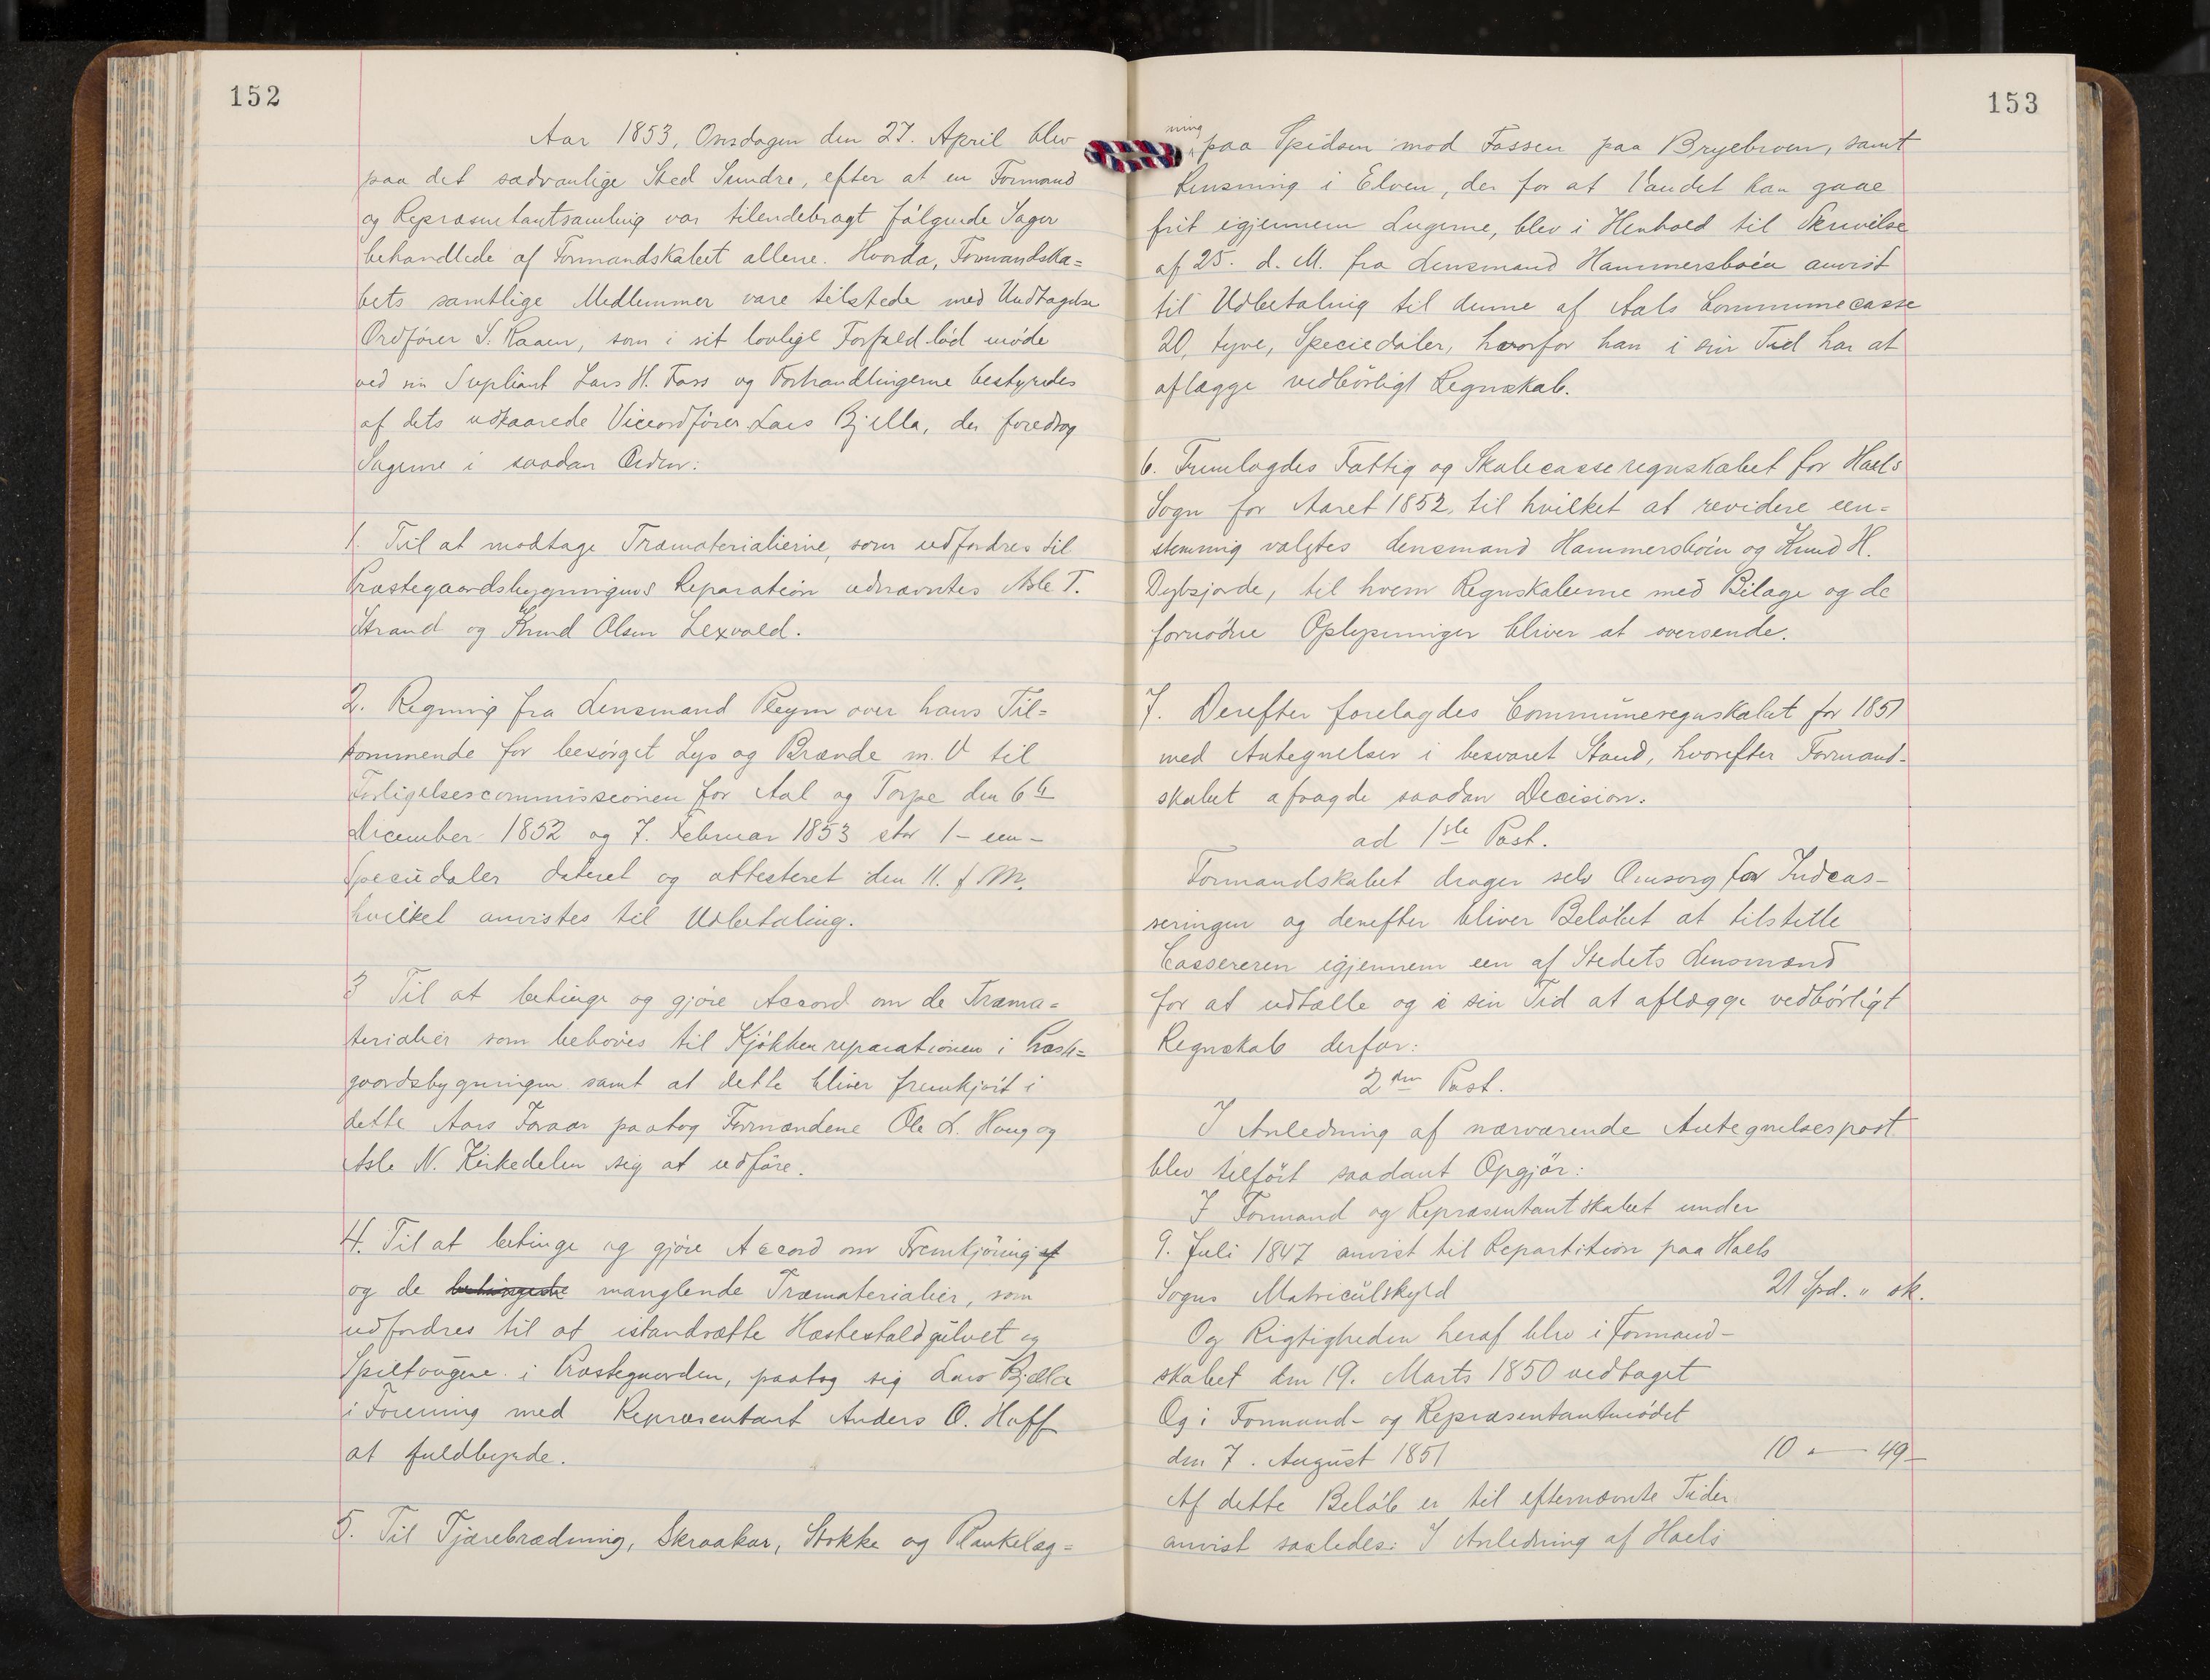 152
Aar 1853, Onsdagen den 27. April blev
paa det sædvanlige Sted Sundre, efter at en Formand
og Repræsentantsamling var tilendebragt følgende Sager
behandlede af Formandskabet allene. Hvorda, Formandska=
bets samtlige Medlemmer vare tilstede med Undtagelse
Ordfører S. Raaen, som i sit lovlige Forfald lod møde
ved sin Supliant Lars H. Foss og Forhandlingerne bestyredes
af dets udkaarede Viceordfører Lars Bjella, der foredrog
Sagerne i saadan Orden:
1. Til at modtage Træmaterialierne, som udfordres til
Præstegaardsbygningens Reparation udnævntes Asle T.
Strand og Knud Olsen Lexvold.
2. Regning fra Lensmand Pleym over hans Til=
kommende for besørget Lys og Brænde m. V til
Forligelsescommissionen for Aal og Torpe den 6te
December 1852 og 7. Februar 1853 stor 1 - een -
Speciedaler dateret og attesteret den 11. f M.
hvilket anvistes til Udbetaling.
3 Til at betinge og gjøre Accord om de Træma=
terialier som behøves til Kjøkkenreparationen i Præste=
gaardsbygningen samt at dette bliver fremkjørt i
dette Aars Foraar paatog Formændene Ole L. Haug og
Asle N. Kirkedelen sig at udføre.
4. Til at betinge og gjøre Accord om Fremkjøring af
og de betingede manglende Træmaterialier, som
udfordres til at istandsætte Hæstestaldgulvet og
Spiltougene i Præstegaarden, paatog sig Lars Bjella
i Forening med Repræsentant Anders O. Hoff
at fuldbyrde.
5. Til Tjærebrædning, Skraakar, Stokke og Plankelæg=
153
ning
paa Spidsen mod Fossen paa Bryebroen, samt
Rensning i Elven, der for at Vandet kan gaae
frit igjennem Lugerne, blev i Henhold til Skrivelse
af 25. d. M. fra Lensmand Hammersbøen anvist
til Udbetaling til denne af Aals Communecasse
20, tyve, Speciedaler, hvorfor han i sin Tid har at
aflægge vedbørligt Regnskab.
6. Fremlagdes Fattig og Skolecasseregnskabet for Haels
Sogn for Aaret 1852, til hvilket at revidere een=
stemmig valgtes Lensmand Hammersbøen og Knud H.
Dybsjorde, til hvem Regnskaberne med Bilage og de
fornødne Oplysninger bliver at oversende.
7. Derefter forelagdes Communeregnskabet for 1851
med Antegnelser i besvaret Stand, hvorefter Formand-
skabet afsagde saadan Decision.
ad 1ste Post.
Formandskabet drager selv Omsorg for Indcas-
seringen og derefter bliver Beløbet at tilstille
Cassereren igjennem een af Stedets Lensmænd
for at udtælle og i sin Tid at aflægge vedbørligt
Regnskab derfor:
2den Post.
I Anledning af nærværende Antegnelsespost
blev tilført saadant Opgjør:
I Formand og Repræsentantskabet under
9. Juli 1847 anvist til Repartition paa Haels
Sogns Matriculskyld 21 Spd. " sk.
Og Rigtigheden heraf blev i Formand-
skabet den 19. Marts 1850 vedtaget
Og i Formand- og Repræsentantmødet
den 7. August 1851 10 - 49 -
Af dette Beløb er til efternævnte Tider
anvist saaledes: I Anledning af Haels